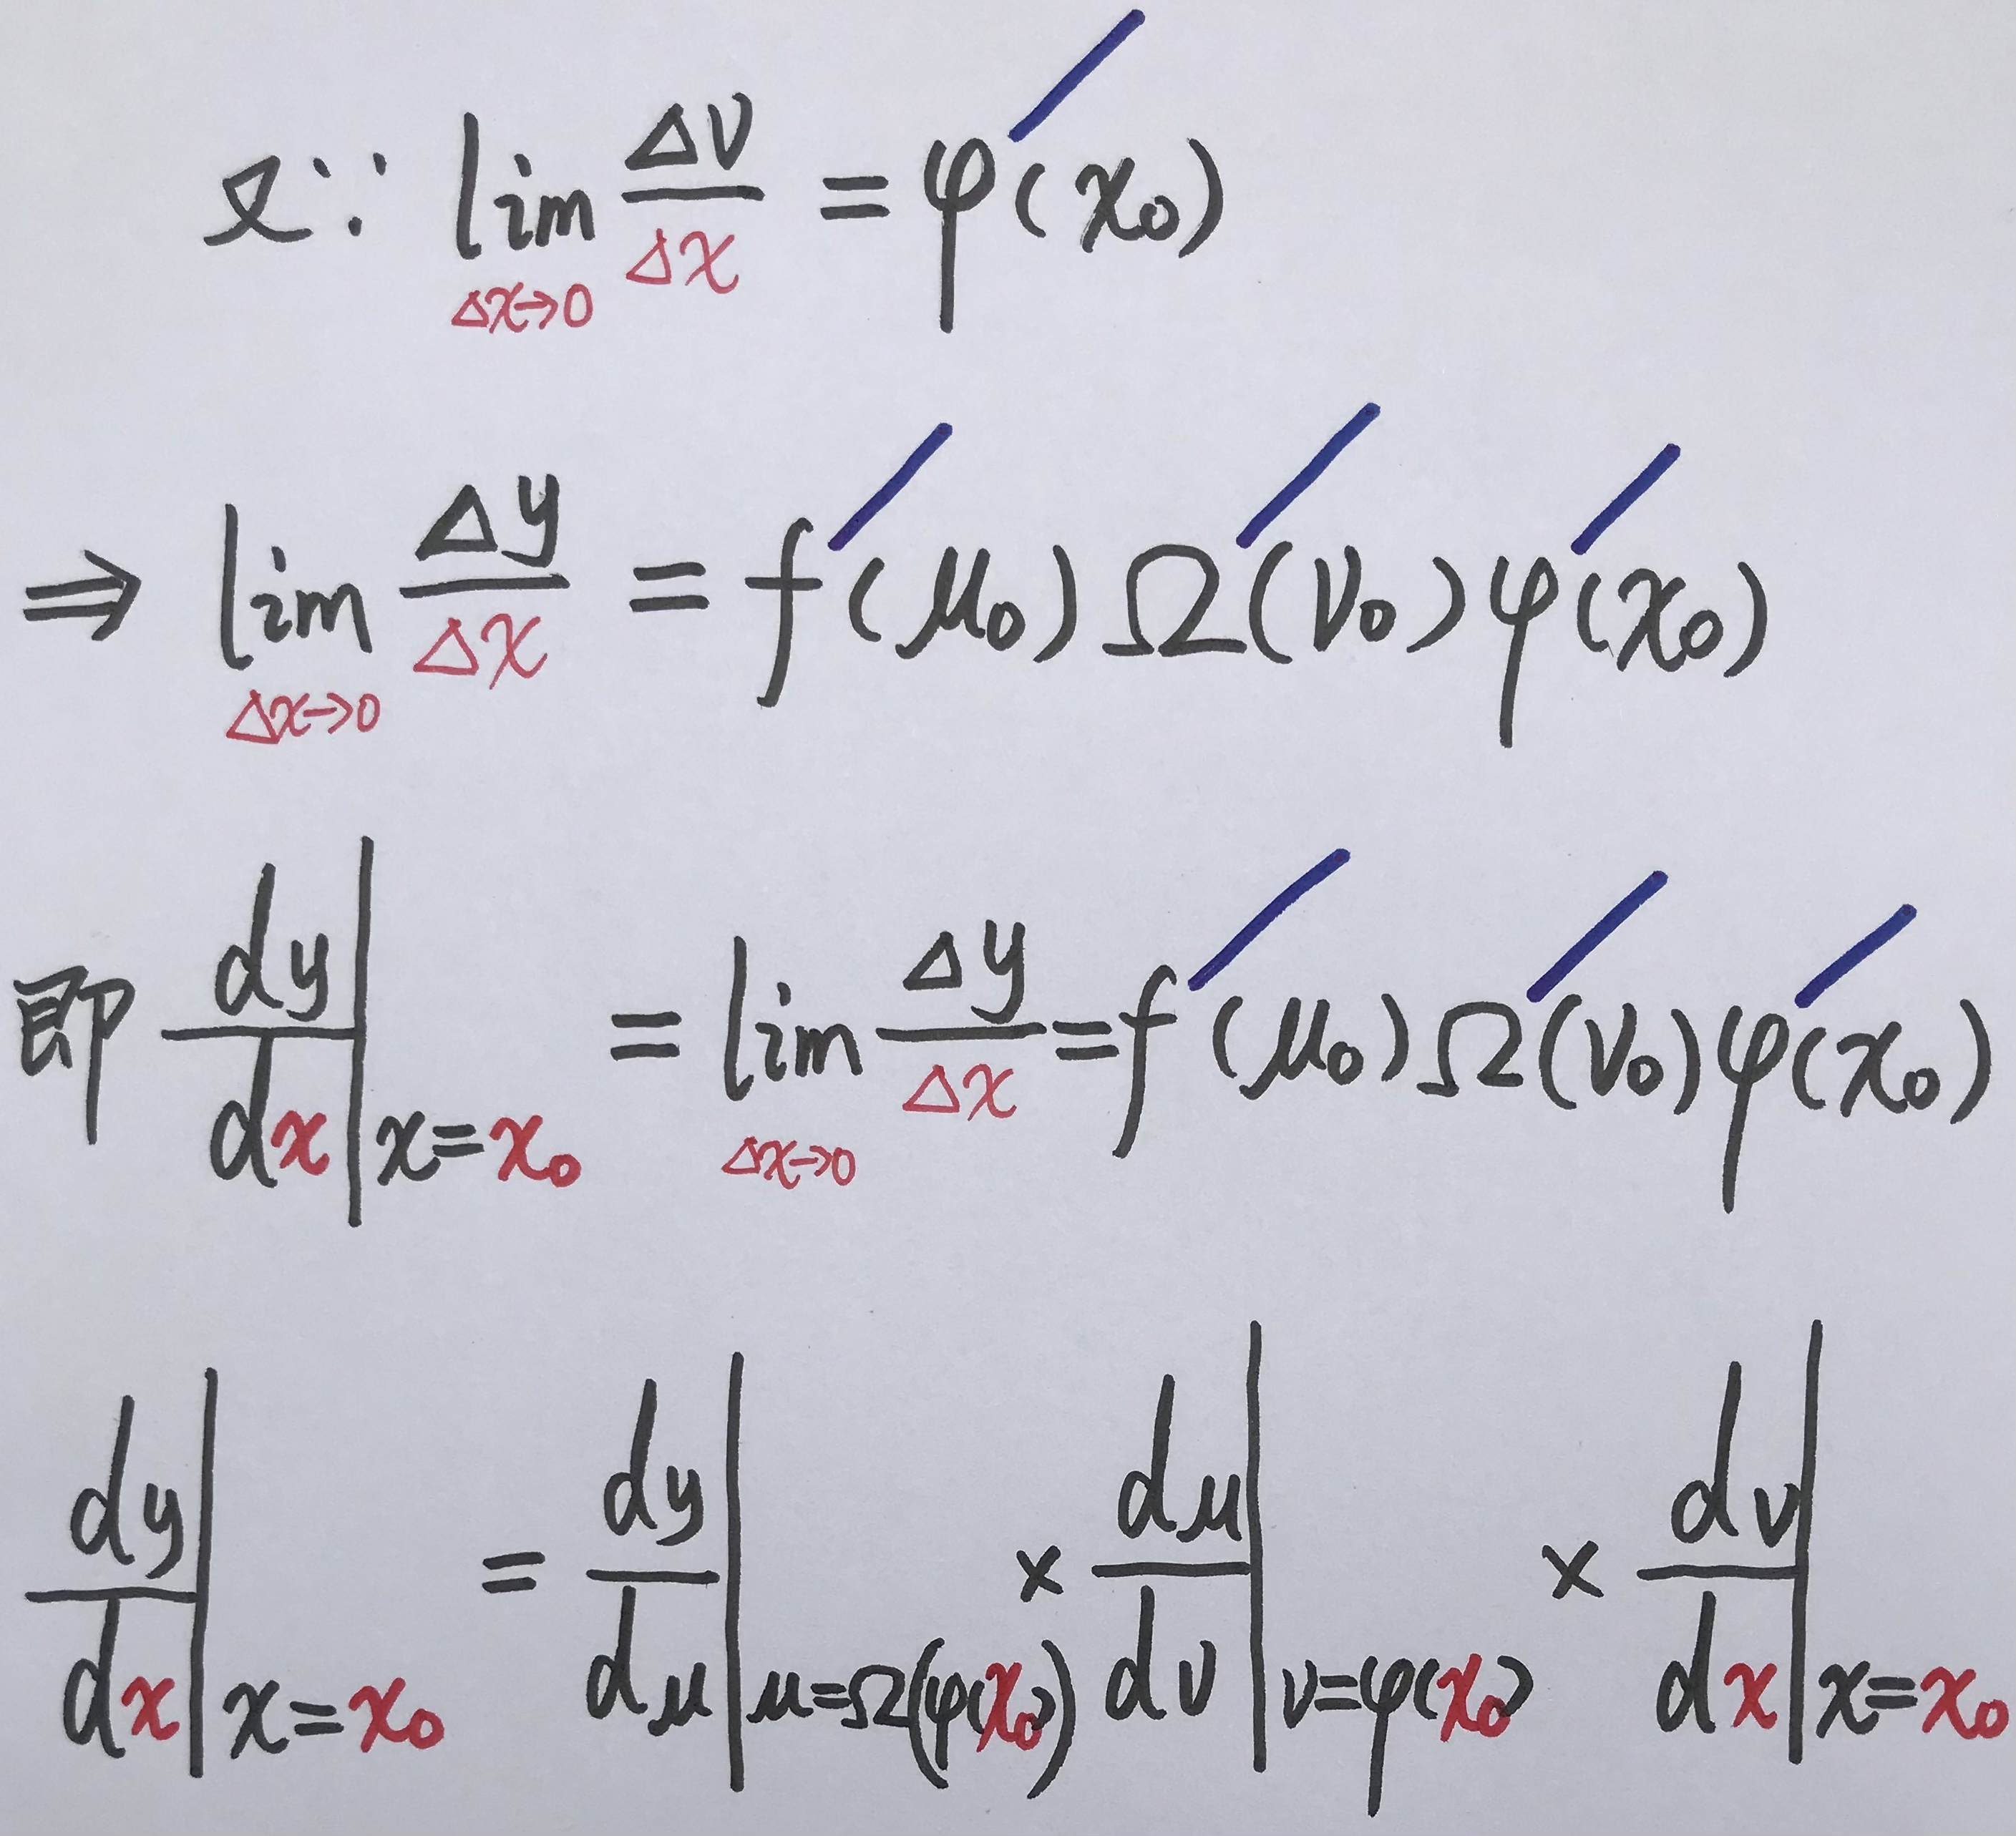 又∵ lim_{Δx→0} Δν/Δx = φ′(x₀)
⇒ lim_{Δx→0} Δy/Δx = f′(μ₀) Ω′(ν₀) φ′(x₀)
即 dy/dx|_{x=x₀} = lim_{Δx→0} Δy/Δx = f′(μ₀) Ω′(ν₀) φ′(x₀)
dy/dx|_{x=x₀} = dy/dμ|_{μ=Ω(φ(x₀))} × dμ/dν|_{ν=φ(x₀)} × dν/dx|_{x=x₀}